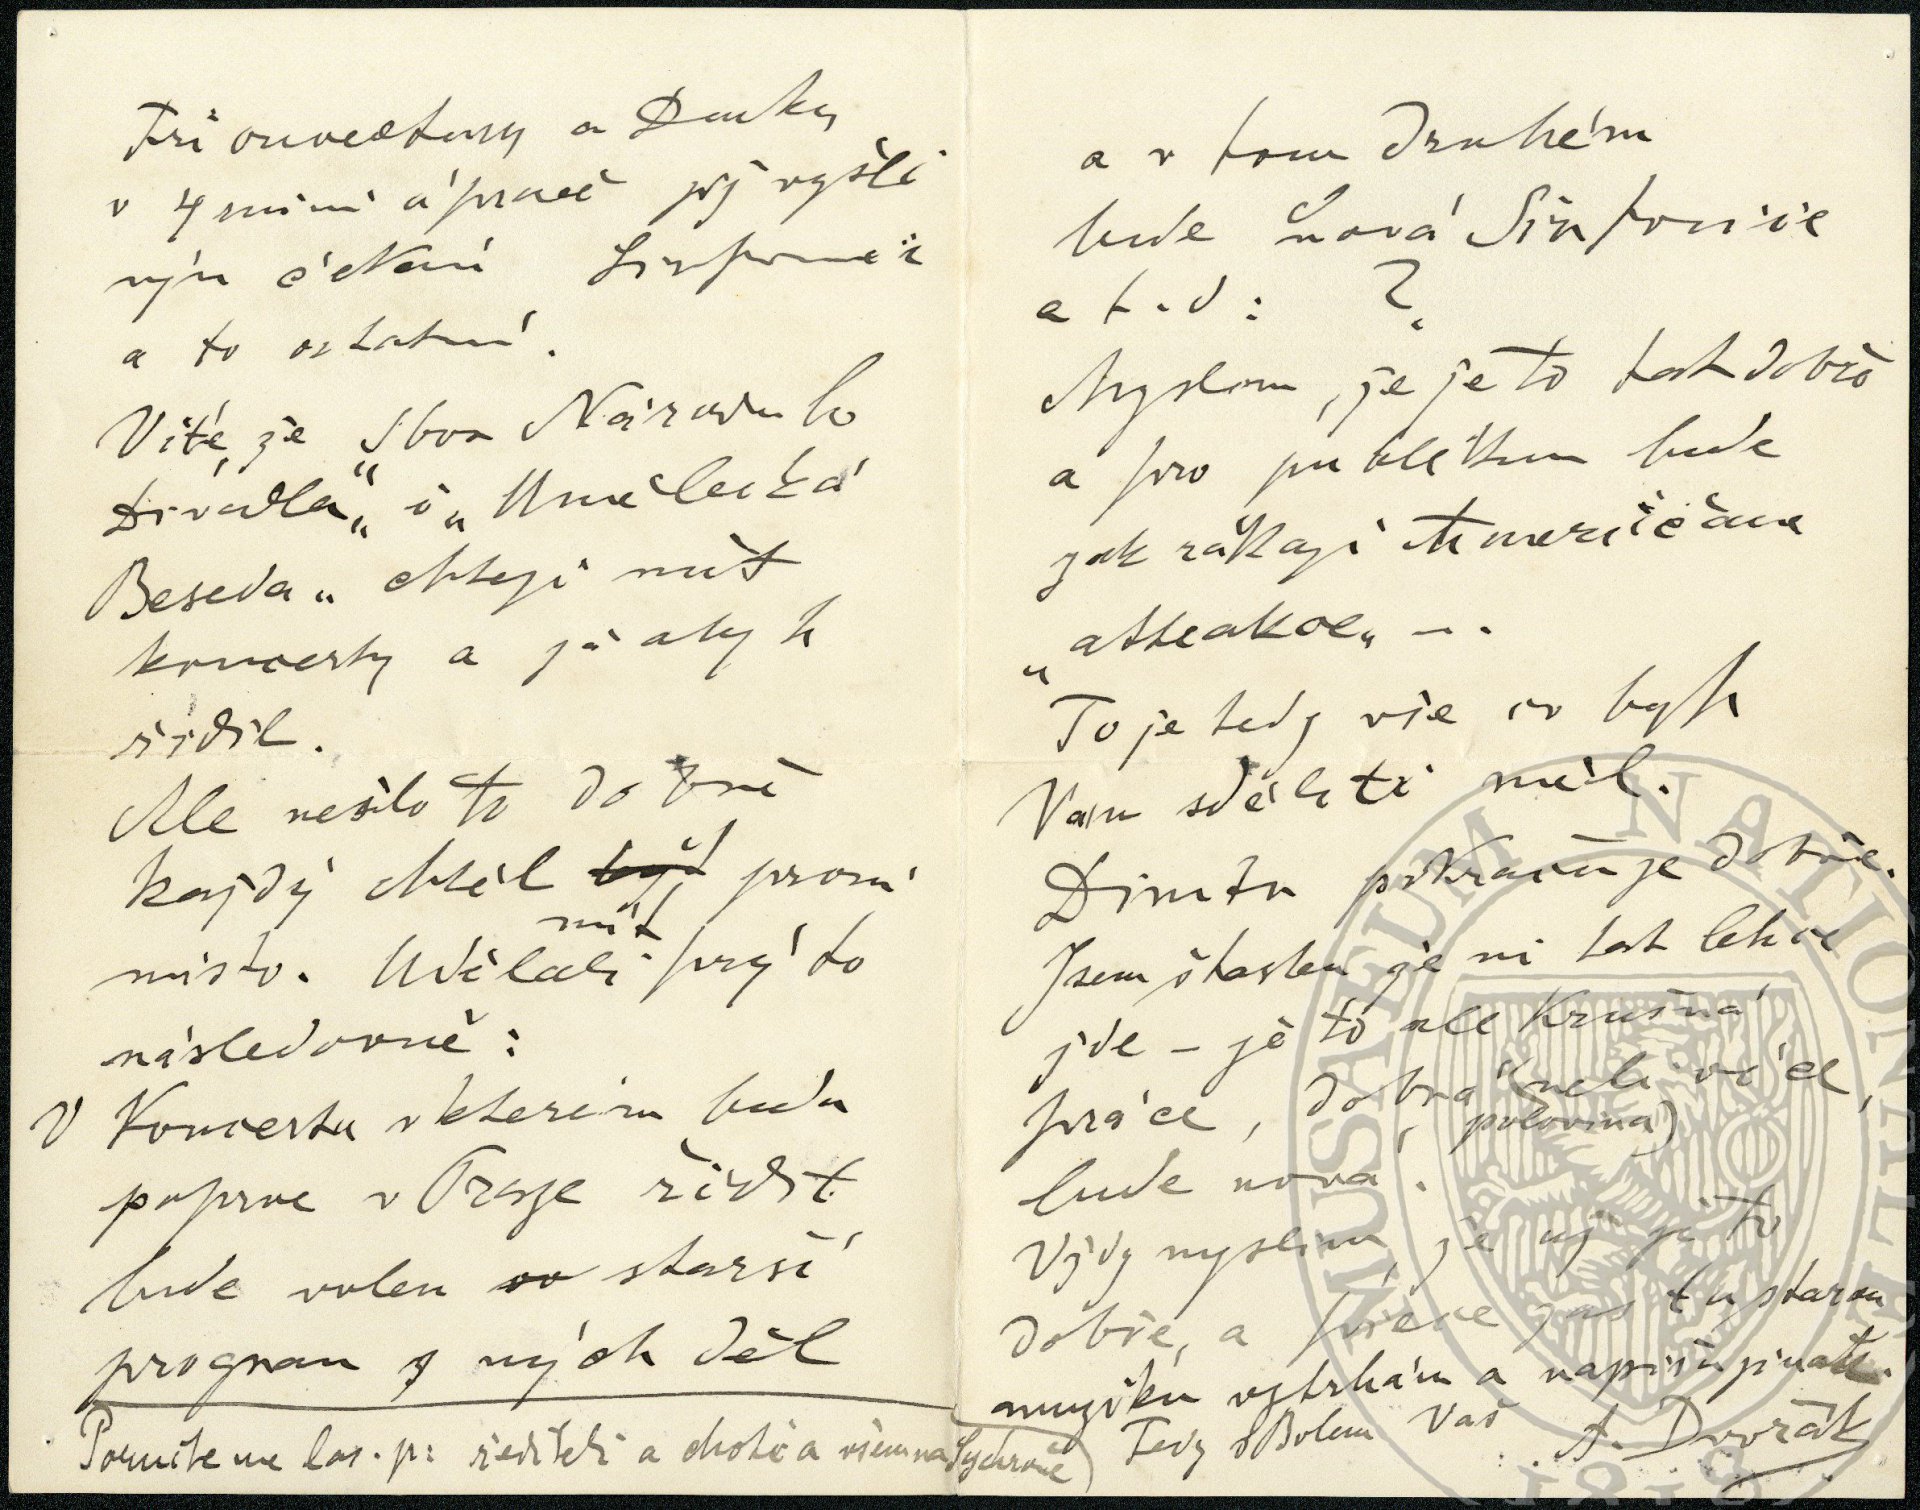 Tři ouvertury a Dumky
v 4 ruční úpravě již vyšli
nyní čekání Sinfonie
a to ostatní.
Víte, že "Sbor Národního
Divadla" i "Umělecká
Beseda" chtějí mít
koncerty a já abych
řídil.
Ale nešlo to dobře
každý chtěl být první
mít
místo. Udělali prý to
následovně:
V Koncertu v kterém budu
poprve v Praze řídit
bude volen starší
program z mých děl
Poručte me los. p: řediteli a choti a všem na Sychrově)
a v tom druhém
bude nová Sinfonie
a t.d: ?
Myslím, že je to tak dobře
a pro publikum bude
jak říkají Američané
"attrakce" –.
To je tedy vše co bych
Vám sděliti měl.
Dimitr pokračuje dobře.
Jsem šťasten že mi tak lehce
jde – je to ale krušná
práce, dobrá (neli více,
polovina)
bude nová.
Vždy myslím, že už je to
dobře, a přece zas tu starou
muziku vytrhám a napíšu jinak.
Tedy s Bohem Váš A. Dvořák
MUSAEUM NATIONALE
1818